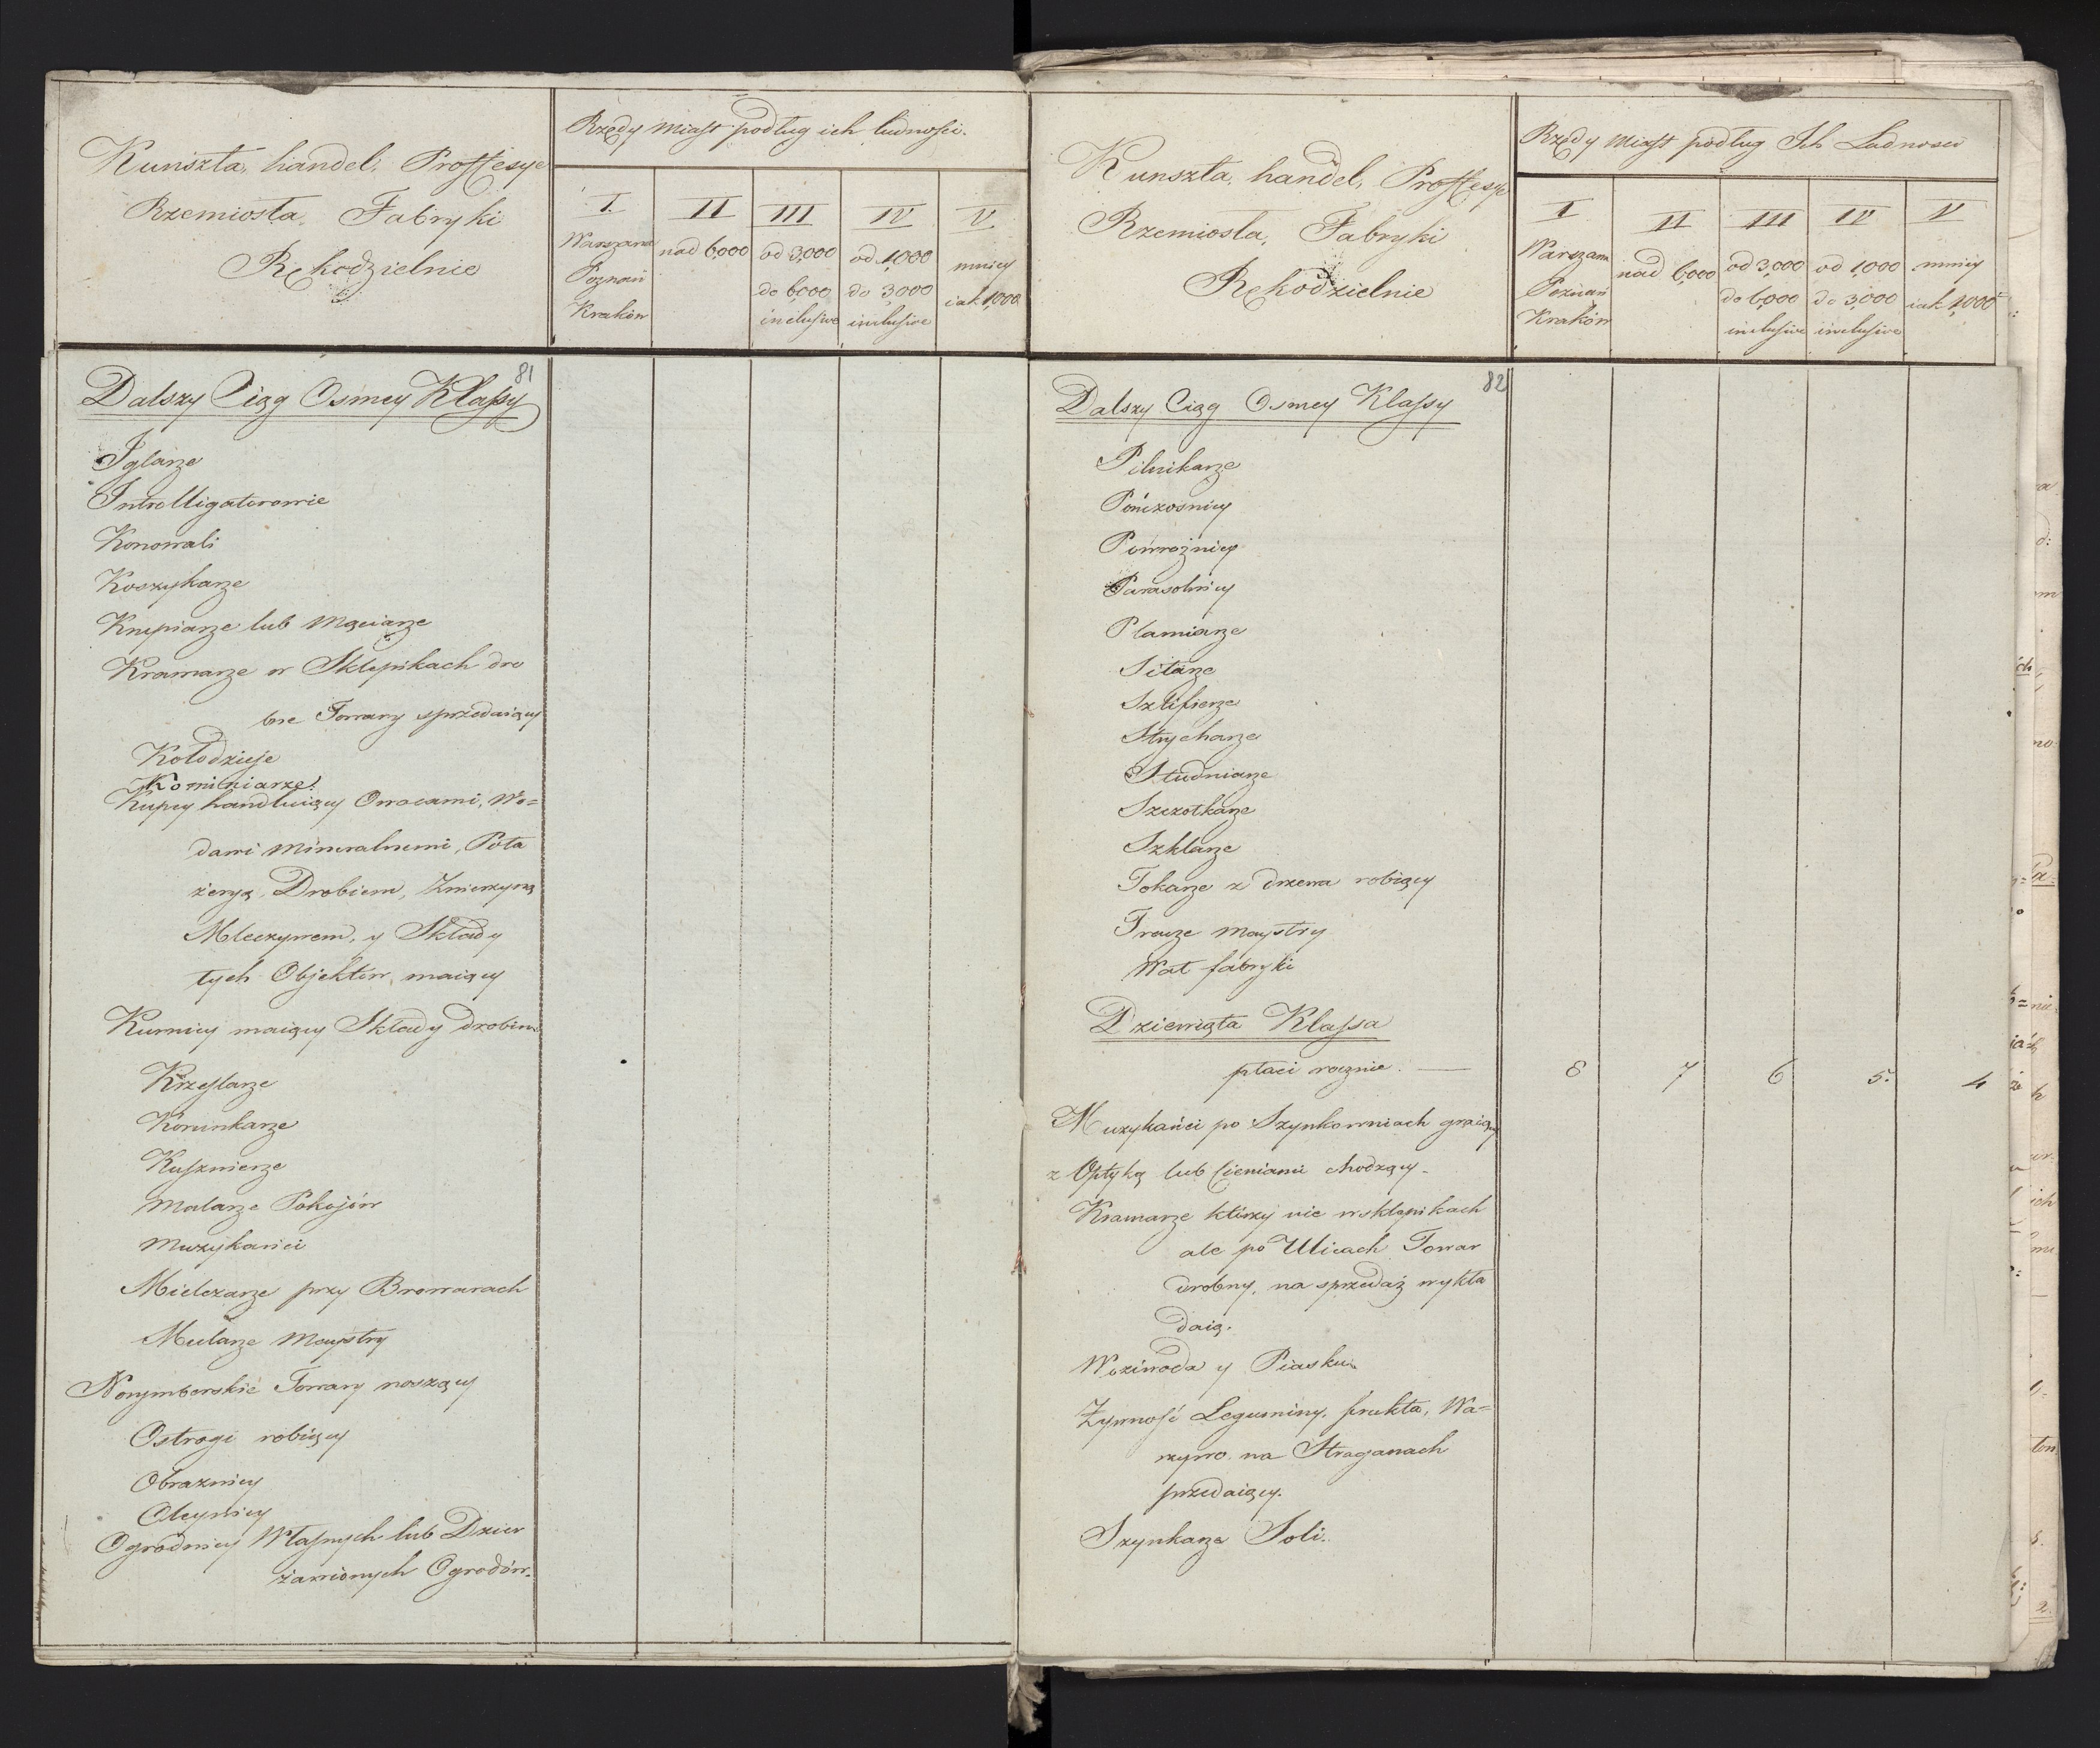 Kunszta, handel, Proffesye
Rzemiosła, Fabryki
Rękodzielnie
Rzędy Miast podług ich ludności.
I. II III IV V
Warszawa nad 6,000 od 3,000 od 1,000 mniey
Poznań do 6,000 do 3,000 iak 1,000
Kraków inclusive inclusive
81
Dalszy Ciąg Osmey Klassy
Iglarze
Introlligatorowie
Konowali
Koszykarze
Krupiarze lub Mączarze
Kramarze w Sklepikach dro
bne Towary sprzedaiący
Kołodzieje
Kominiarze.
Kupcy handluiący Owocami, Wo=
dami Mineralnemi, Pota
żeryą, Drobiem, Zwierzyną
Mleczywem, y Składy
tych Objektów, maiący
Kurnicy maiący Składy drobiu
Krzeslarze
Korunkarze
Kuszmierze
Malarze Pokojów
Muzykańci
Mielcarze przy Browarach
Mularze Maystry
Norymberskie Towary noszący
Ostrogi robiący
Obraznicy
Oleynicy
Ogrodnicy Własnych lub Dzier
żawionych Ogrodów.
Kunszta, handel, Proffesye
Rzemiosła, Fabryki
Rękodzielnie
Rzędy Miast podług Ich Ludnosci
I II III IV V
Warszawa nad 6,000 od 3,000 od 1,000 mniey
Poznań do 6,000 do 3,000 iak 1,000
Kraków inclusive inclusive
82
Dalszy Ciąg Osmey Klassy
Pilnikarze
Pończosnicy
Powroźnicy
Parasolnicy
Plamiarze
Sitarze
Szlifierze
Strycharze
Studniarze
Szczotkarze
Szklarze
Tokarze z drzewa robiący
Tracze Maystry
Wat fabryki
Dziewiąta Klassa
płaci rocznie. — 8 7 6 5. 4
Muzykańci po Szynkowniach graiący
z Optyką lub Cieniami chodzący.
Kramarze którzy nie w sklepikach
ale po Ulicach Towar
drobny, na sprzedaż wykła
daią.
Woziwoda y Piasku
Żywność Leguminy, frukta, Wa=
rzywo na Straganach
przedaiący.
Szynkarze Soli.